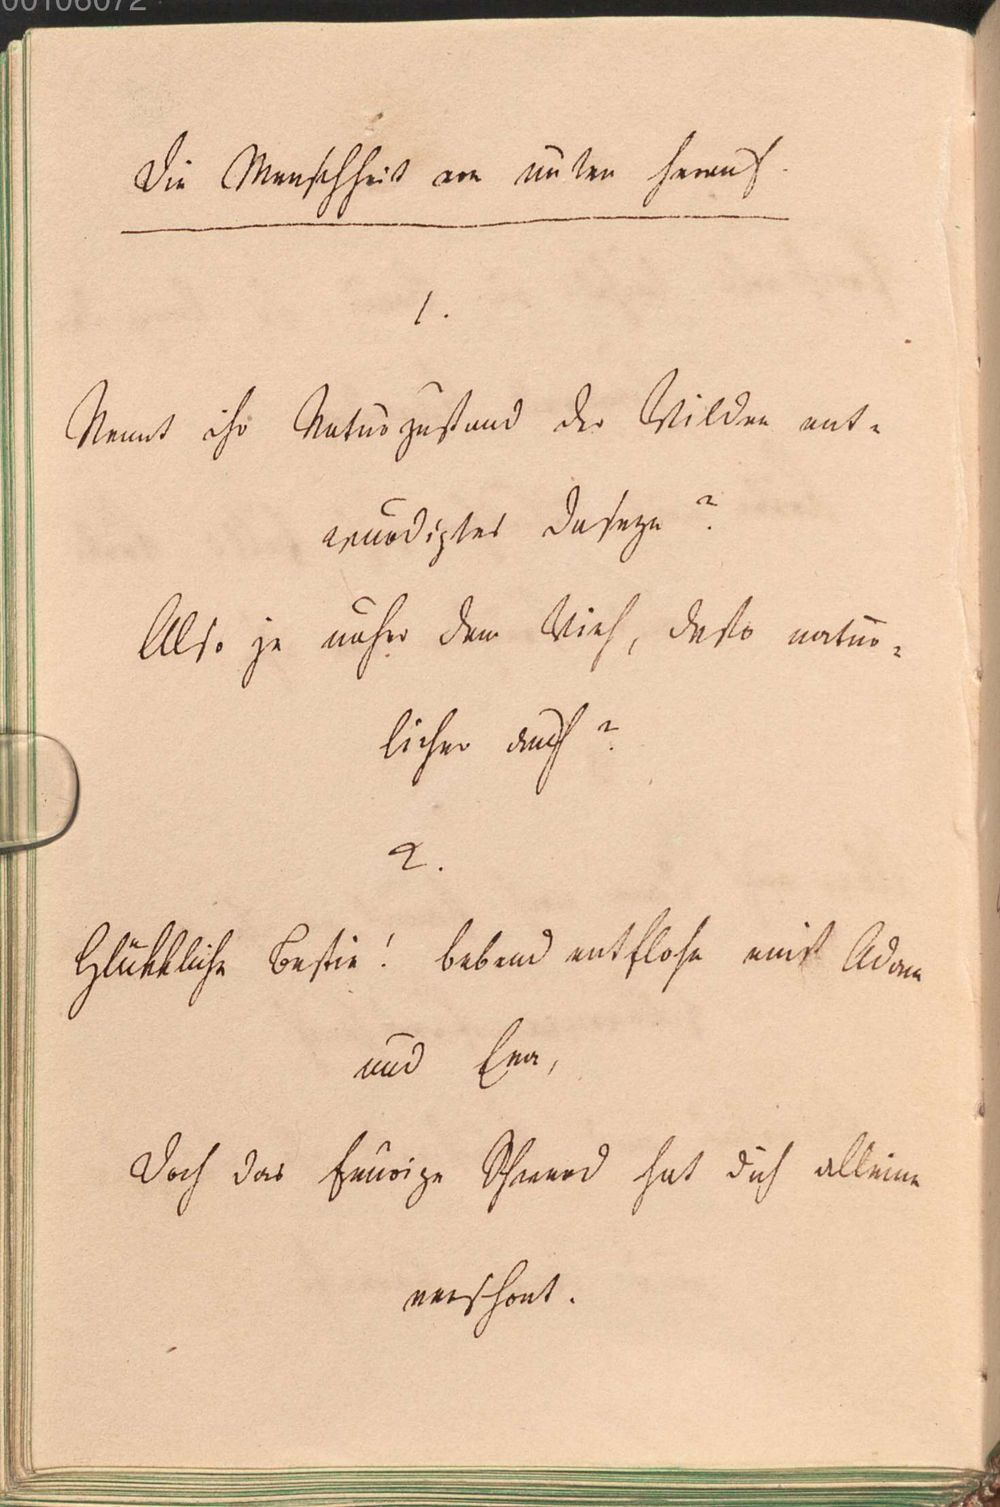 00106072
Die Menschheit von unten herauf.
1.
Nennt ihr Naturzustand der Wilden ent-
würdigtes Daseyn?
Also je näher dem Vieh, desto natür-
licher auch?
2.
Glükkliche Bestie! bebend entflohn einst Adam
und Eva,
Doch das feurige Schwerd hat dich alleine
verschont.